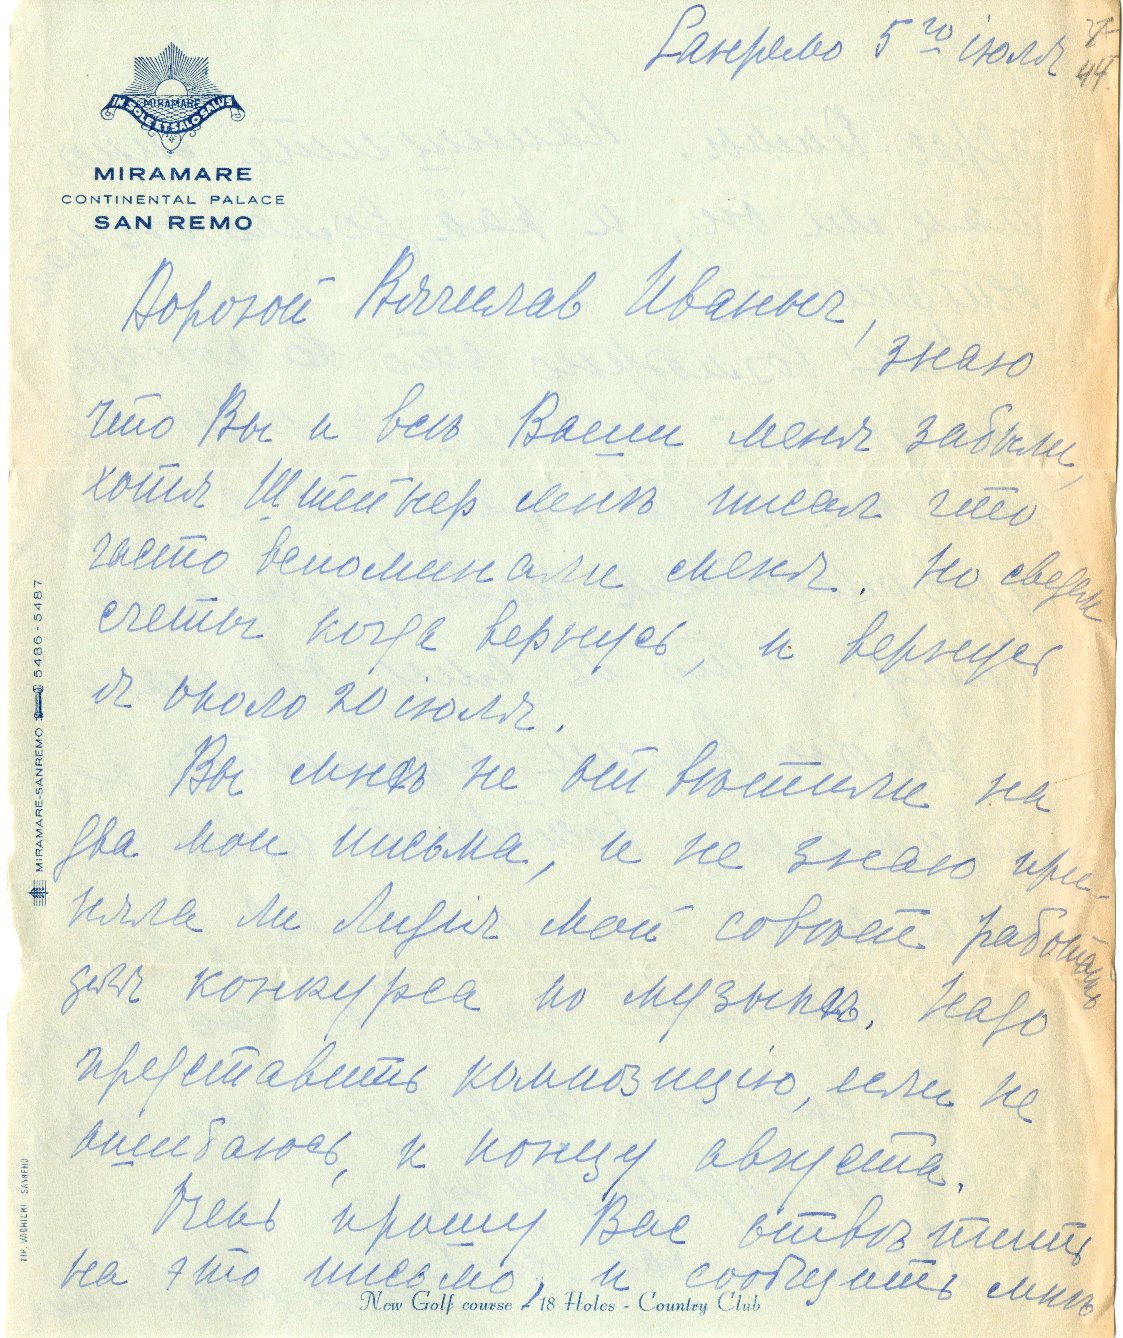 Санремо 5го іюля
44.
MIRAMARE
IN SOLE ET SALO SALUS
MIRAMARE
CONTINENTAL PALACE
SAN REMO
Дорогой Вячеслав Иваныч, знаю
что Вы и всѣ Ваши меня забыли,
хотя Штейнер мнѣ писал что
часто вспоминали меня. Но сведем
счеты когда вернусь, и вернусь
я около 20 іюля.
Вы мнѣ не отвѣтили на
два мои письма, и не знаю при-
няла ли Лидія мой совѣт работать
для конкурса по музыкѣ. Надо
представить композицію, если не
ошибаюсь, к концу августа.
Очень прошу Вас отвѣтить
на это письмо, и сообщить мнѣ
New Golf course - 18 Holes - Country Club
MIRAMARE-SANREMO 5486-5487